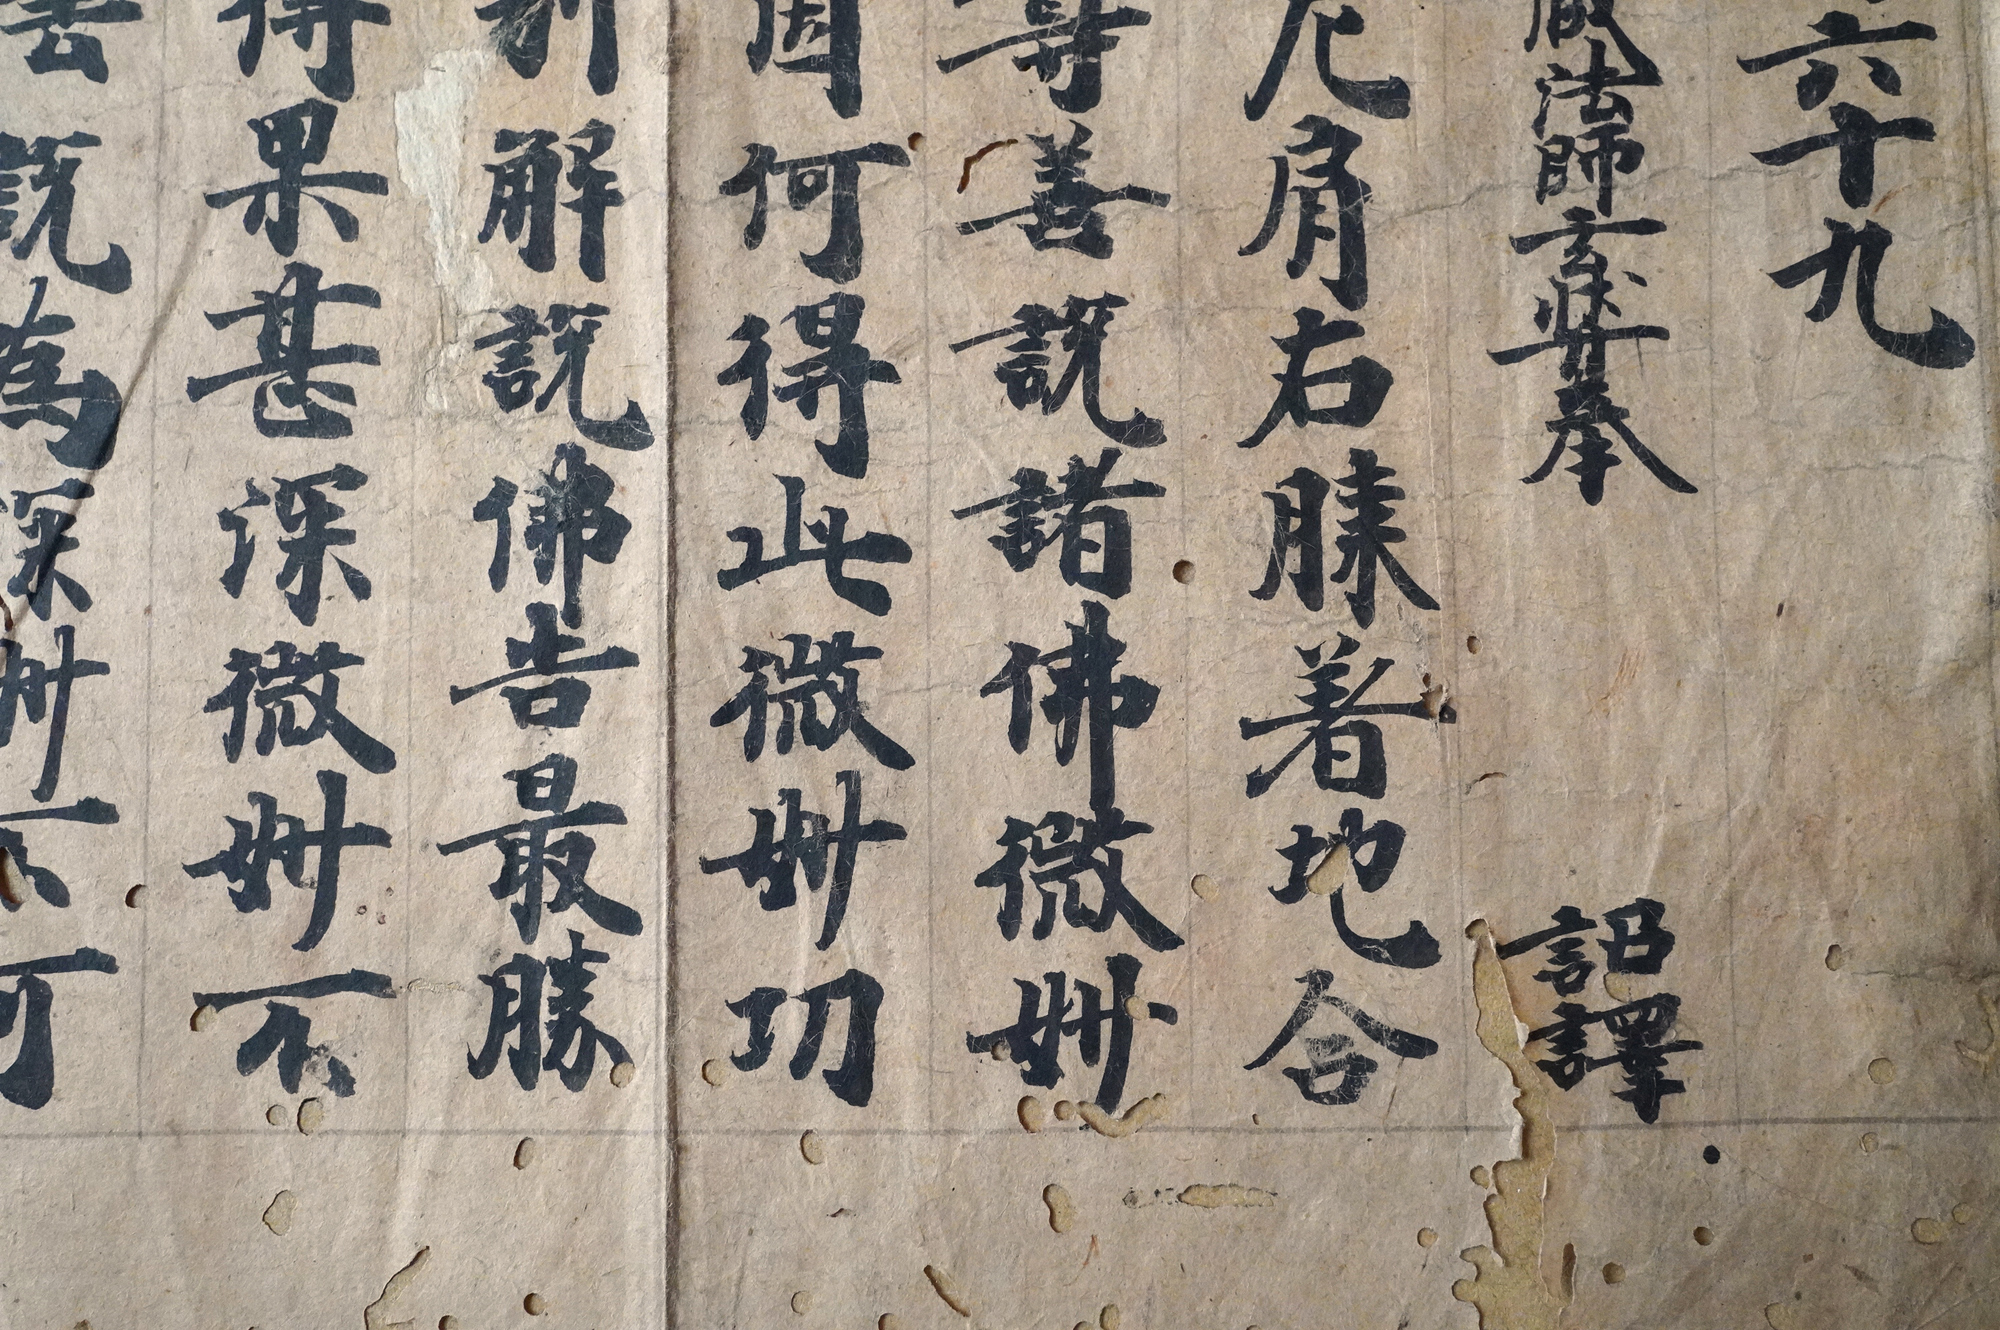 六十九
藏法師玄奘奉　詔譯
肩右膝著地合
尊善說諸佛微妙
因何得此微妙功
利解說佛告最勝
得果甚深微妙不
說為深妙不可